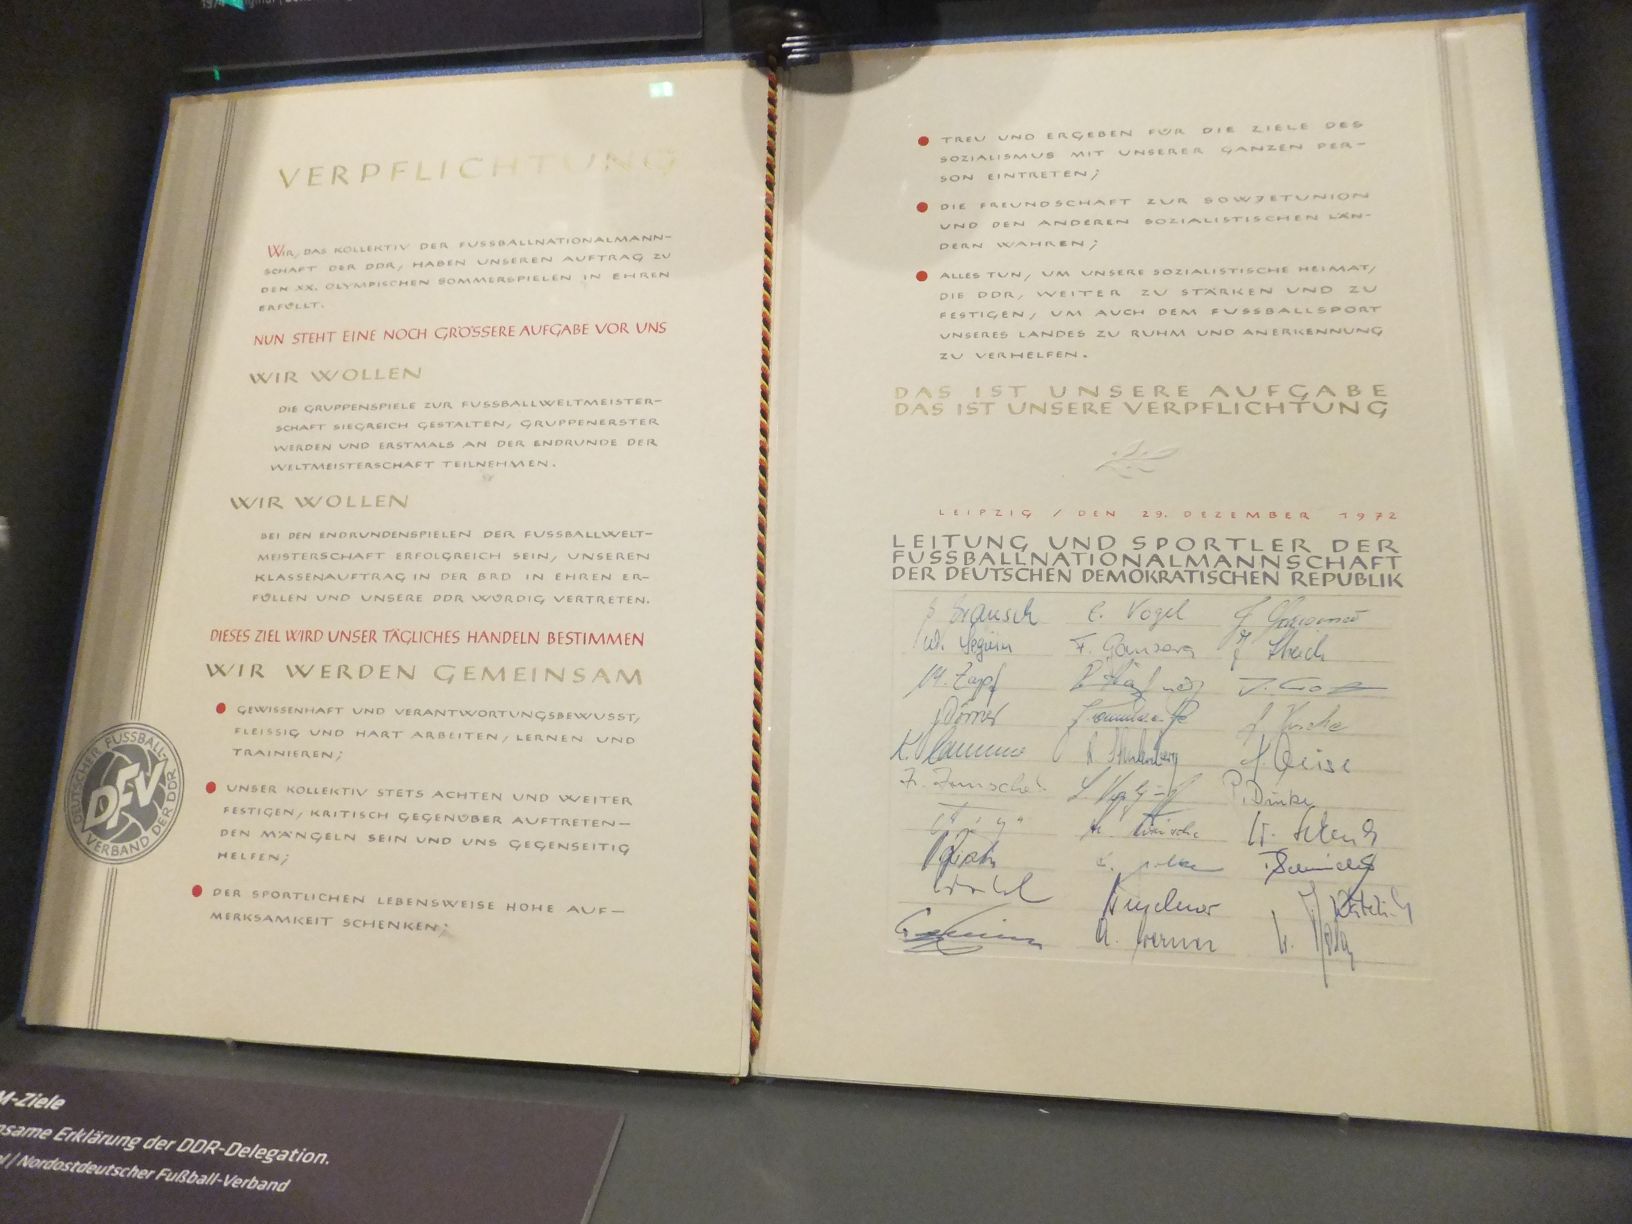 VERPFLICHTUNG
WIR, DAS KOLLEKTIV DER FUSSBALLNATIONALMANN-
SCHAFT DER DDR, HABEN UNSEREN AUFTRAG ZU
DEN XX. OLYMPISCHEN SOMMERSPIELEN IN EHREN
ERFÜLLT.
NUN STEHT EINE NOCH GRÖSSERE AUFGABE VOR UNS
WIR WOLLEN
DIE GRUPPENSPIELE ZUR FUSSBALLWELTMEISTER-
SCHAFT SIEGREICH GESTALTEN, GRUPPENERSTER
WERDEN UND ERSTMALS AN DER ENDRUNDE DER
WELTMEISTERSCHAFT TEILNEHMEN.
WIR WOLLEN
BEI DEN ENDRUNDENSPIELEN DER FUSSBALLWELT-
MEISTERSCHAFT ERFOLGREICH SEIN, UNSEREN
KLASSENAUFTRAG IN DER BRD IN EHREN ER-
FÜLLEN UND UNSERE DDR WÜRDIG VERTRETEN.
DIESES ZIEL WIRD UNSER TÄGLICHES HANDELN BESTIMMEN
WIR WERDEN GEMEINSAM
GEWISSENHAFT UND VERANTWORTUNGSBEWUSST,
FLEISSIG UND HART ARBEITEN, LERNEN UND
TRAINIEREN;
UNSER KOLLEKTIV STETS ACHTEN UND WEITER
FESTIGEN, KRITISCH GEGENÜBER AUFTRETEN-
DEN MÄNGELN SEIN UND UNS GEGENSEITIG
HELFEN;
DER SPORTLICHEN LEBENSWEISE HOHE AUF-
MERKSAMKEIT SCHENKEN;
DEUTSCHER FUSSBALL-
VERBAND DER DDR
DFV
TREU UND ERGEBEN FÜR DIE ZIELE DES
SOZIALISMUS MIT UNSERER GANZEN PER-
SON EINTRETEN;
DIE FREUNDSCHAFT ZUR SOWJETUNION
UND DEN ANDEREN SOZIALISTISCHEN LÄN-
DERN WAHREN;
ALLES TUN, UM UNSERE SOZIALISTISCHE HEIMAT,
DIE DDR, WEITER ZU STÄRKEN UND ZU
FESTIGEN, UM AUCH DEM FUSSBALLSPORT
UNSERES LANDES ZU RUHM UND ANERKENNUNG
ZU VERHELFEN.
DAS IST UNSERE AUFGABE
DAS IST UNSERE VERPFLICHTUNG
LEIPZIG / DEN 29. DEZEMBER 1972
LEITUNG UND SPORTLER DER
FUSSBALLNATIONALMANNSCHAFT
DER DEUTSCHEN DEMOKRATISCHEN REPUBLIK
B. Bransch E. Vogel
W. Seguin J. Streich
M. Zapf
Dörner
M-Ziele
same Erklärung der DDR-Delegation.
Nordostdeutscher Fußball-Verband